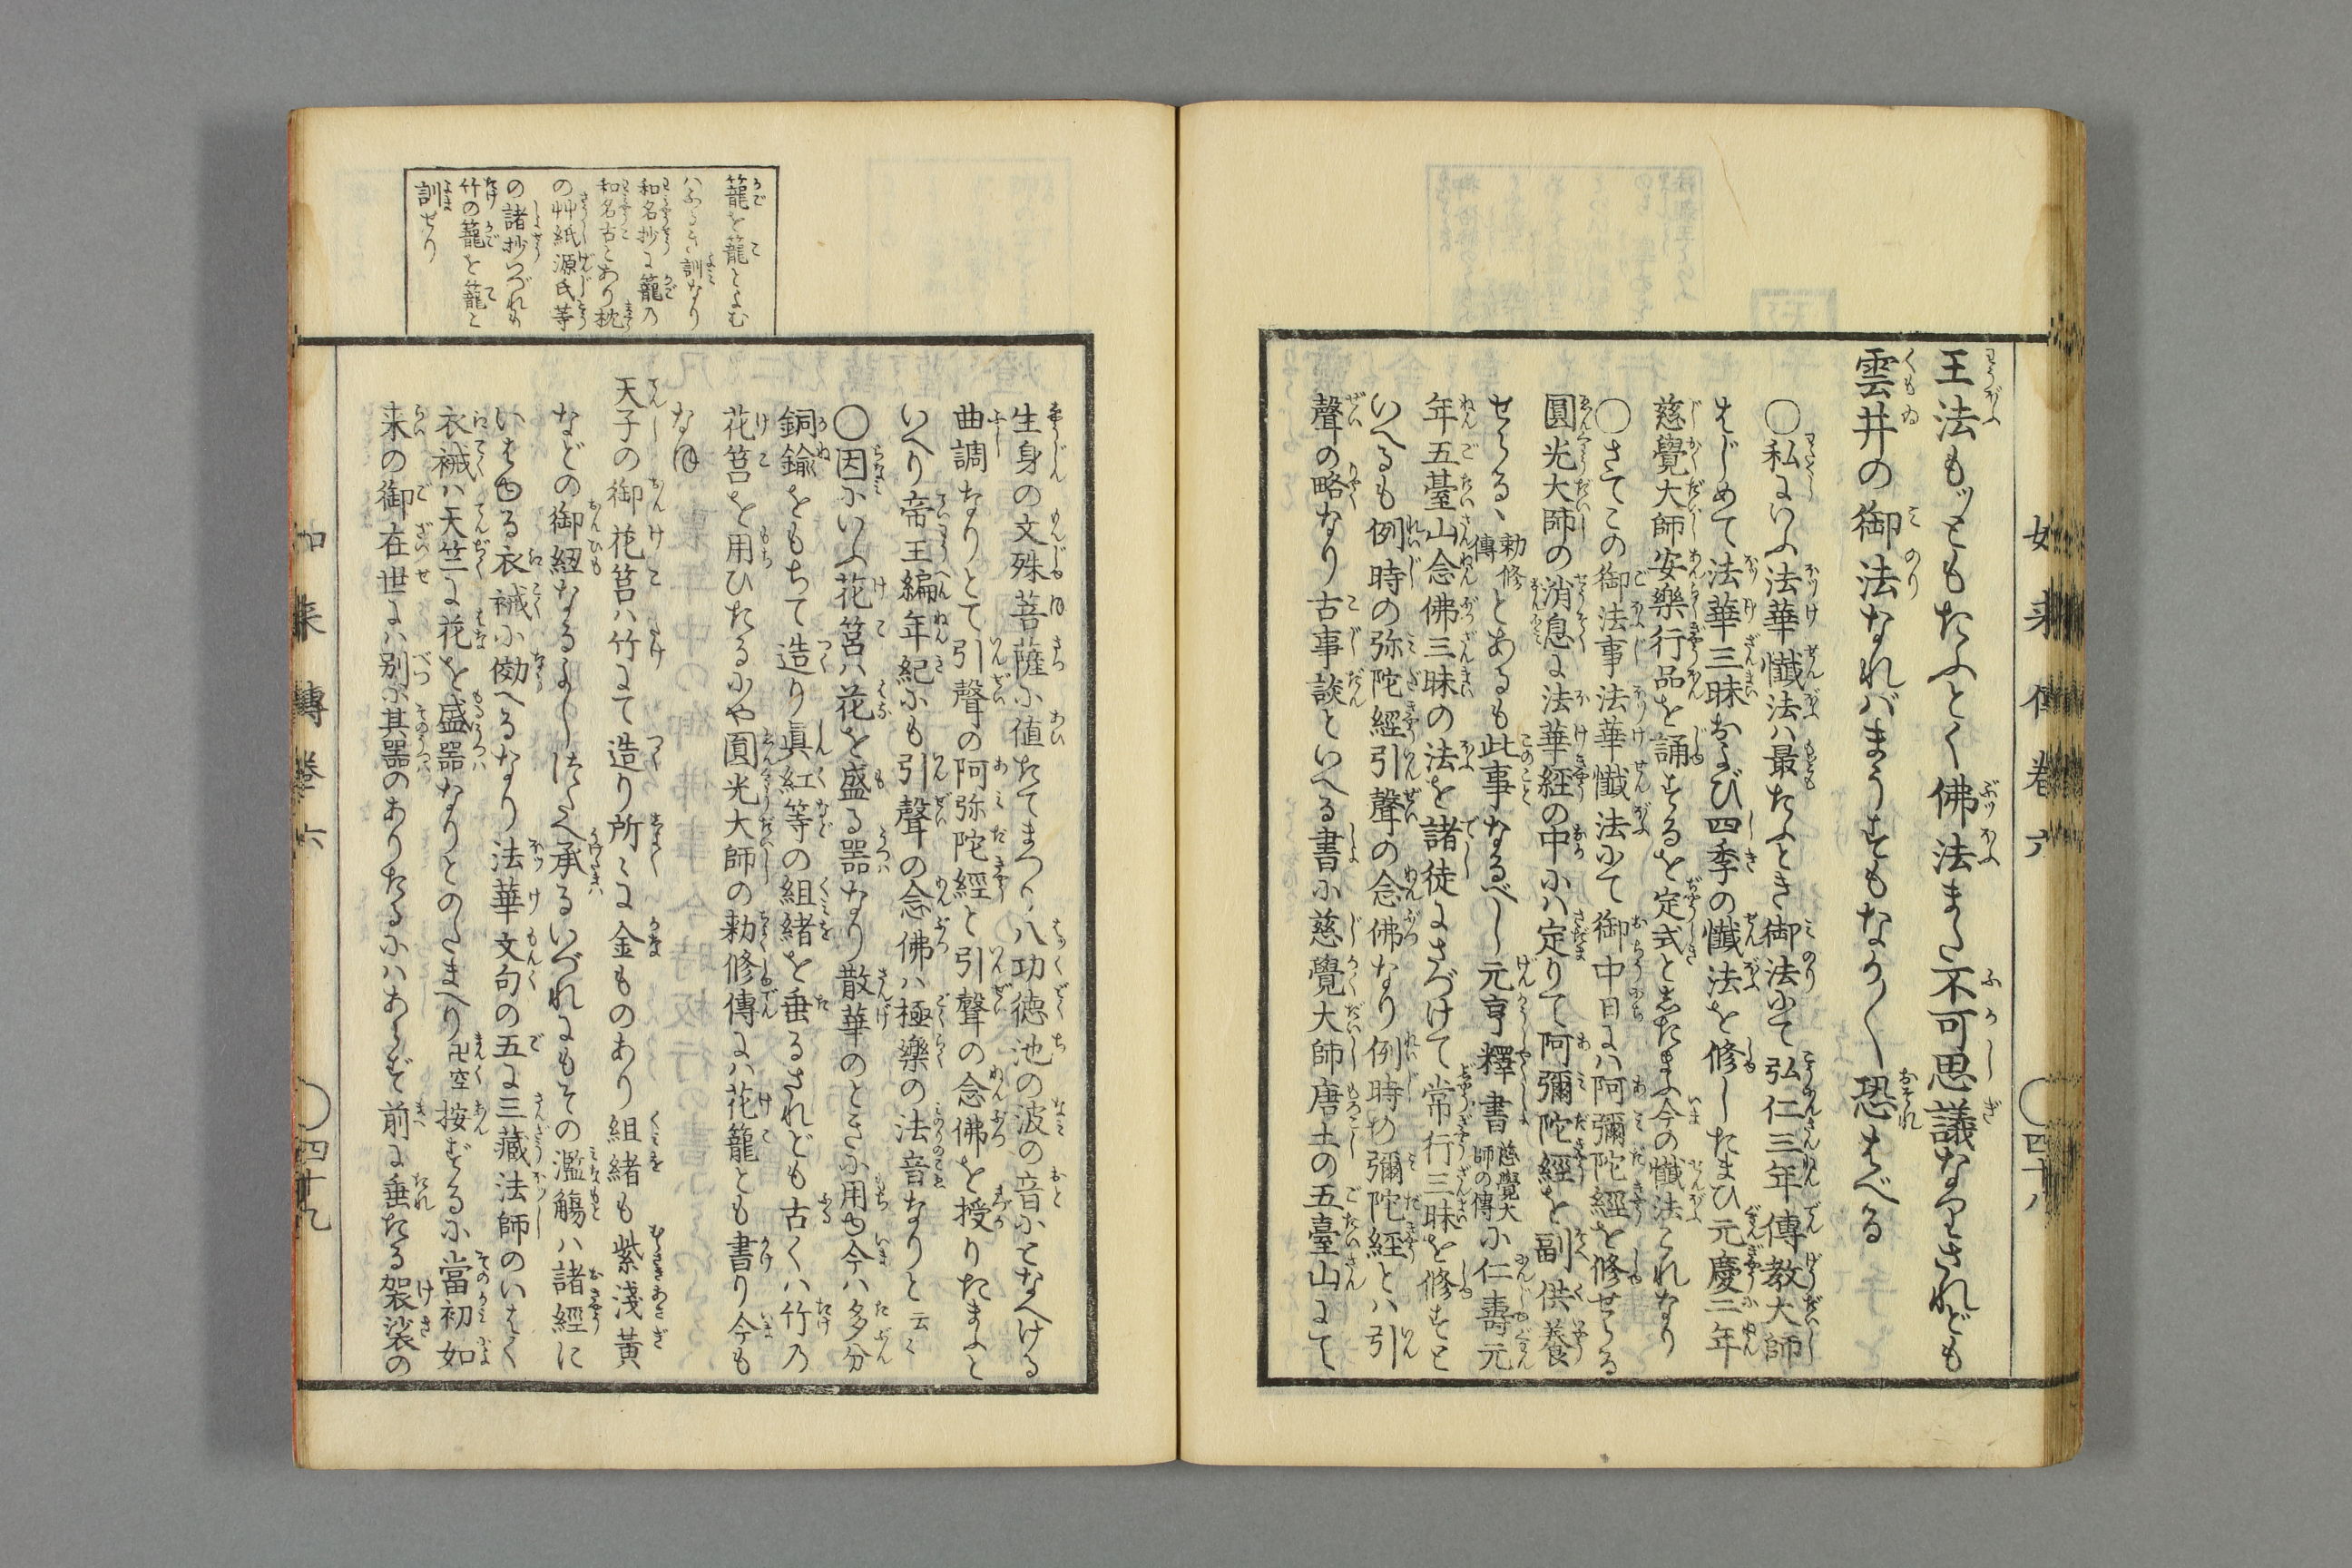 王法もッともたふとく佛法また不可思議なりされども
雲井の御法なれバまうすもなか〳〵恐すべる
〇私にいふ法華懺法ハ最たふとき御法にて弘仁三年傳教大師
はじめて法華三昧および四季の懺法を修したまひ元慶三年
慈覺大師安樂行品を誦するを定式としたまふ今の懺法これなり
〇さてこの御法事法華懺法にて御中日にハ阿彌陀經を修せらるゝ
圓光大師の消息に法華経の中にハ定りて阿彌陀經を副供養
せらるゝ勅修傳とあるも此事なるべし元亨釋書慈覺大師の傳に仁壽元
年五䑓山念佛三昧の法を諸徒にさづけて常行三昧を修すと
いへるも例時の弥陀經引聲の念佛なり例時の彌陀経とハ引
聲の略なり古事談といへる書に慈覺大師唐土の五臺山にて
如来傳巻六
〇四十八
生身の文殊菩薩に値たてまつり八功徳池の波の音にとなへける
曲調なりとて引聲の阿弥陀經と引聲の念佛を授りたまふと
いへり帝王編年紀にも引聲の念佛ハ極樂の法音なりと云々
〇因にいふ花筥ハ花を盛る器なり散華のときに用ゆ今ハ多分
銅鍮をもちて造り眞紅等の組緒を垂るされども古くハ竹の
花筥を用ひたるにや圓光大師の勅修傳にハ花籠とも書り今も
なほ
天子の御花筥ハ竹にて造り所々に金ものあり組緒も紫淺黄
などの御紐なるよしつたへ承るいづれにもその濫觴ハ諸經に
いはゆる衣裓に傚へるなり法華文句の五に三藏法師のいはく
衣裓ハ天竺に花を盛器なりとのたまへり卍空按ずるに當初如
来の御在世にハ別に其器のありたるにハあらず前に垂たる袈裟の
籠を籠とよむ
ハふるき訓なり
和名抄に籠の
和名古とあり枕
の艸紙源氏等
の諸抄いづれも
竹の籠を籠と
訓せり
如来傳巻六
〇四十九